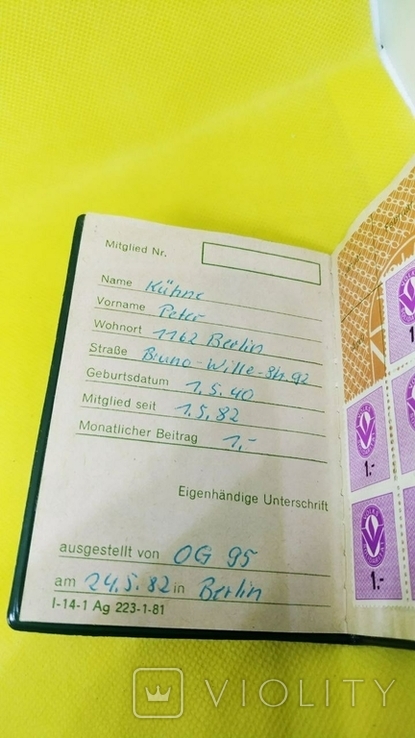 Mitglied Nr.
Name Kühne
Vorname Peter
Wohnort 1162 Berlin
Straße Bruno-Wille-Str. 92
Geburtsdatum 1.5.40
Mitglied seit 1.5.82
Monatlicher Beitrag 1,-
Eigenhändige Unterschrift
ausgestellt von OG 95
am 24.5.82 in Berlin
I-14-1 Ag 223-1-81
1.-
1.-
VIOLITY